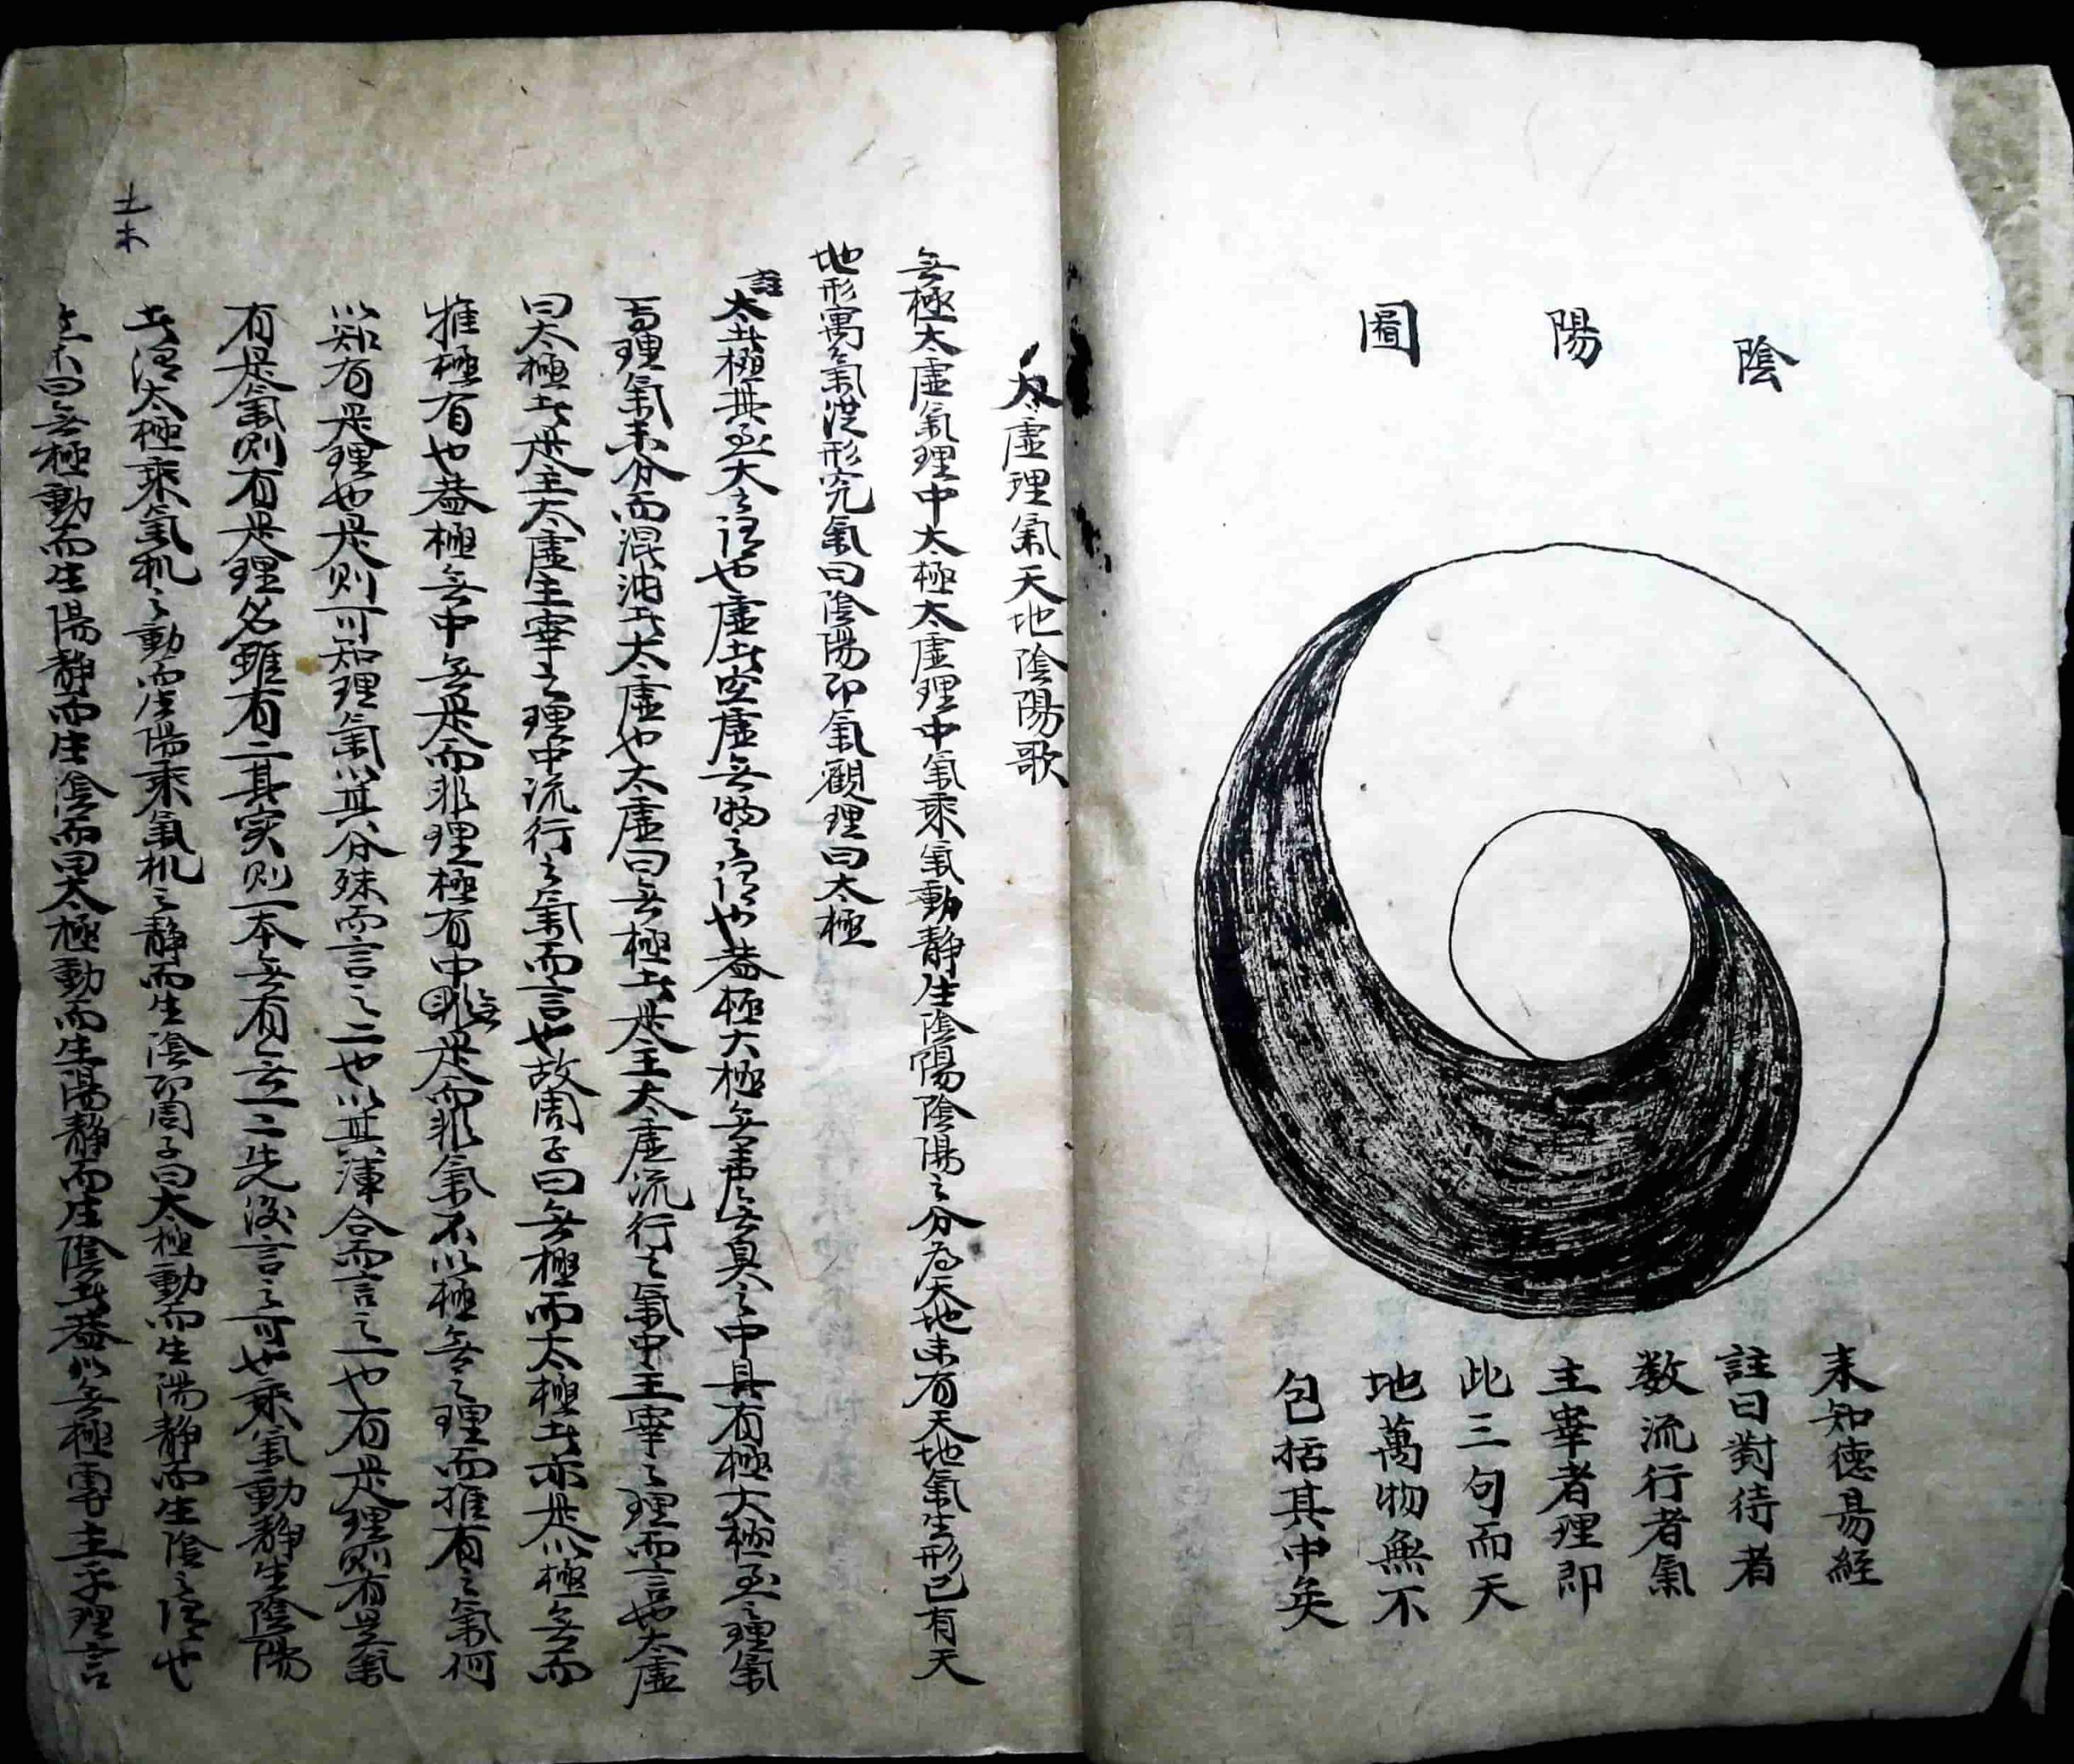 陰陽圖
耒知德易經
註曰對待者
数流行者氣
主宰者理即
此三句而天
地萬物無不
包括其中矣
太虛理氣天地陰陽歌
無極太虛氣理中太極太虛理中氣乘氣動靜生陰陽陰陽之分為天地未有天地氣生形已有天
地形寓氣從形究氣曰陰陽即氣觀理曰太極
註太者極其至大之謂也虛者空虛無物之謂也蓋極大極無聲無臭之中具有極大極至之理氣
焉理氣未分而混沌者太虛也太虛曰無極者是主太虛流行之氣中主宰之理而言也太虛
曰太極者是主太虛主宰之理中流行之氣而言也故周子曰無極而太極者亦是以極無而
推極有也蓋極無中無是而非理極有中無是而非氣不以極無之理而推有之氣何
以知有是理也是則可知理氣以其分殊而言之二也以其渾合而言之一也有是理則有是氣
有是氣則有是理名雖有二其实則一本無有無一二先後言之可也乘氣動靜生陰陽
者謂太極乘氣机之動而生陽乘氣机之靜而生陰即周子曰太極動而生陽靜而生陰之謂也
不曰無極動而生陽靜而生陰而曰太極動而生陽靜而生陰者蓋以無極專主乎理言
土木